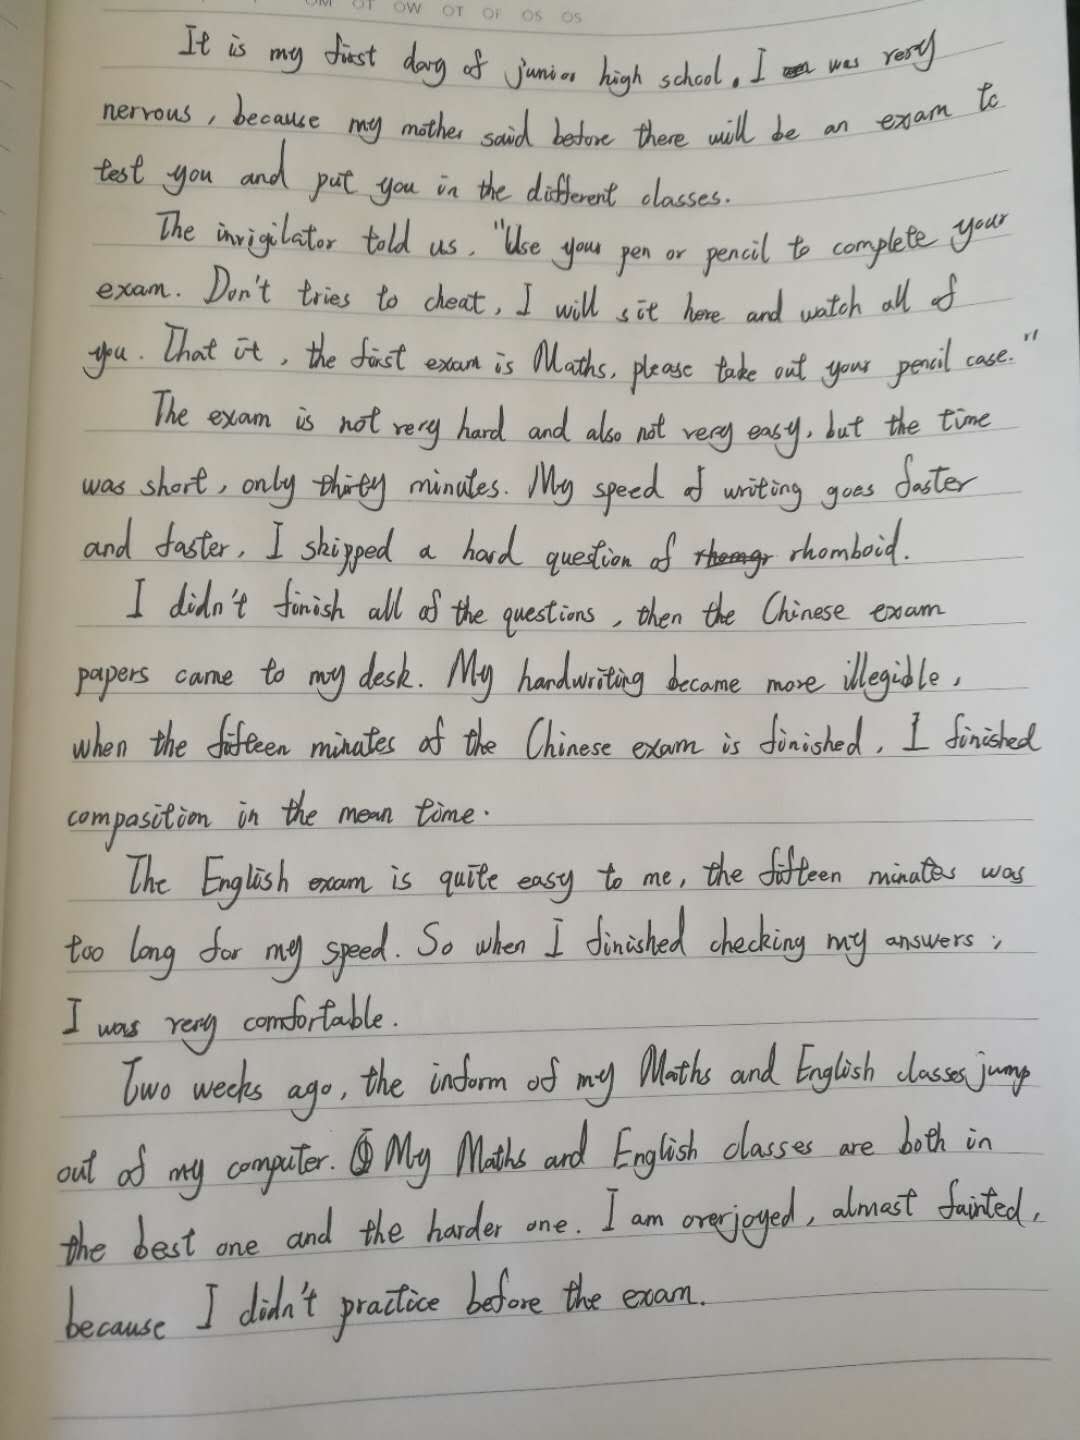 OM OT OW OT OF OS OS
It is my first day of junior high school. I was very
nervous, because my mother said before there will be an exam to
test you and put you in the different classes.
The invigilator told us, "Use your pen or pencil to complete your
exam. Don't tries to cheat, I will sit here and watch all of
you. That it, the first exam is Maths, please take out your pencil case."
The exam is not very hard and also not very easy, but the time
was short, only thirty minutes. My speed of writing goes faster
and faster, I skipped a hard question of rhomboid.
I didn't finish all of the questions, then the Chinese exam
papers came to my desk. My handwriting became more illegible,
when the fifteen minutes of the Chinese exam is finished, I finished
composition in the mean time.
The English exam is quite easy to me, the fifteen minutes was
too long for my speed. So when I finished checking my answers,
I was very comfortable.
Two weeks ago, the inform of my Maths and English classes jump
out of my computer. My Maths and English classes are both in
the best one and the harder one. I am overjoyed, almost fainted,
because I didn't practice before the exam.